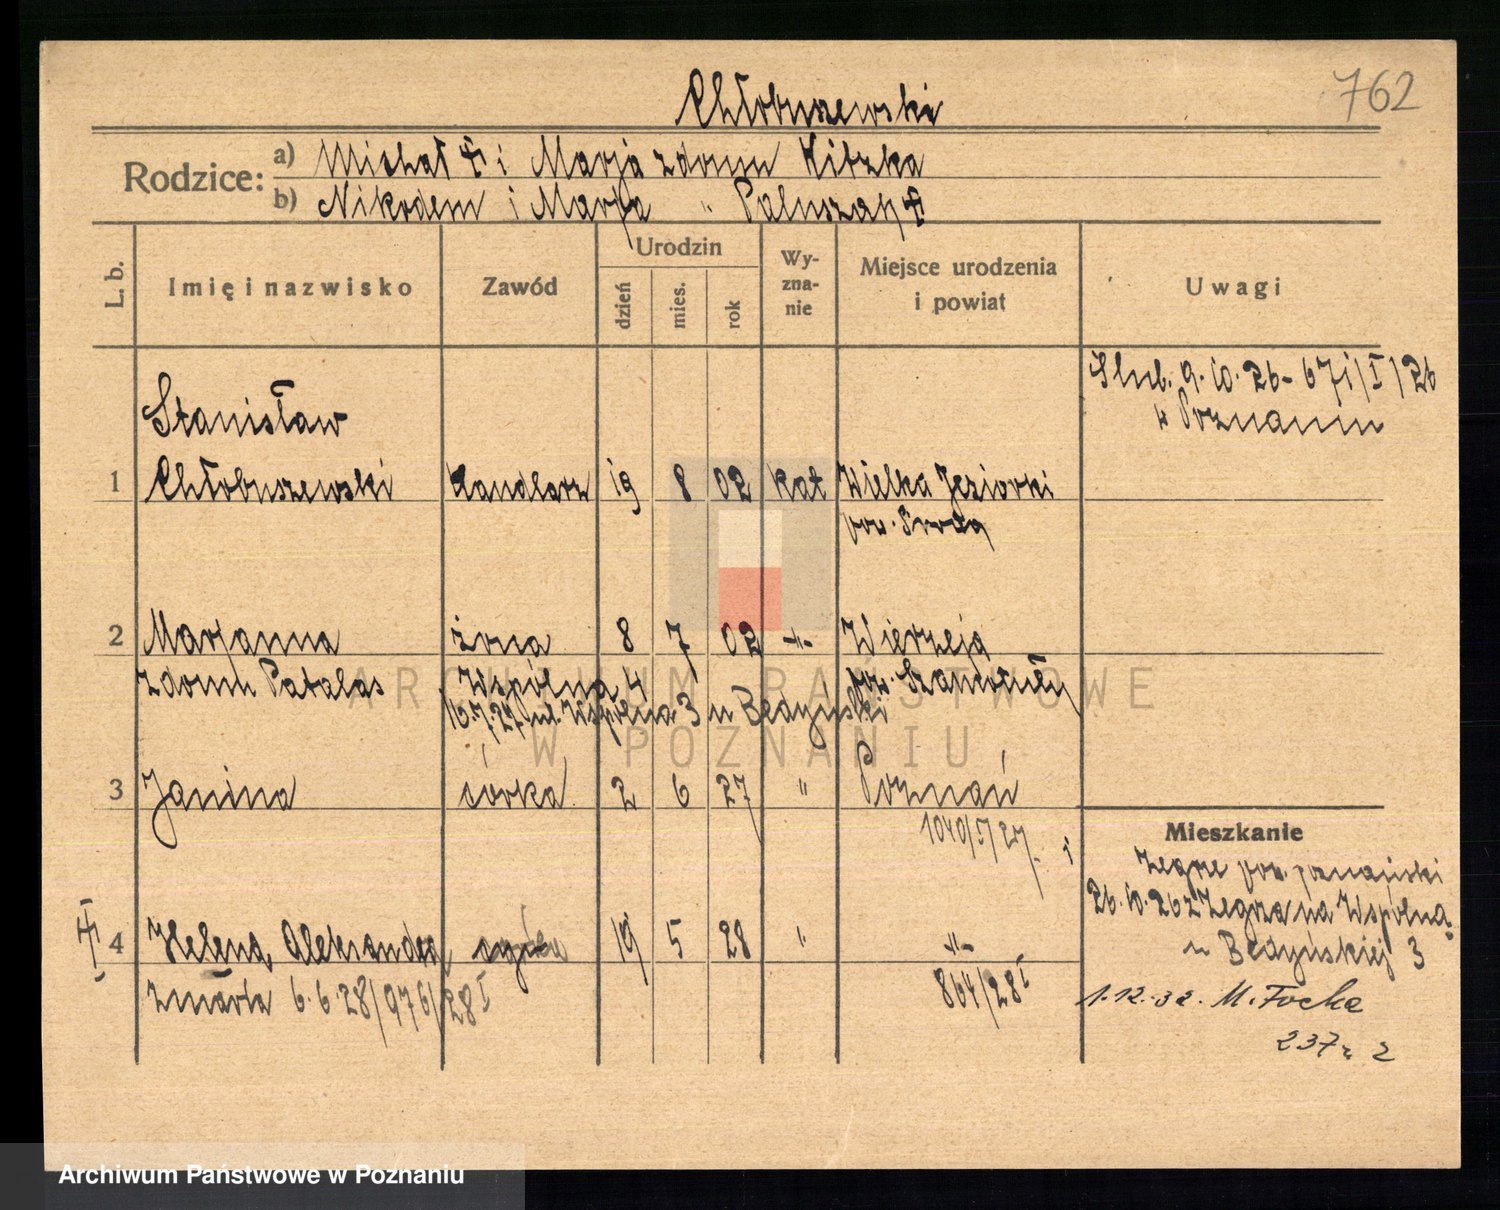 762
Chłobuszewski
Rodzice:
a) Michał i Marja zdomu Kitzka
b) Nikodem i Marja " Paluszak
L. b. Imię i nazwisko Zawód Urodzin dzień mies. rok Wy-zna-nie Miejsce urodzenia i powiat Uwagi
Ślub. 9.10.26 - 671/I/26
w Poznaniu
Stanisław
1 Chłobuszewski handlarz 19 8 02 kat Wielka Jeziorki
pow.
2 Marjanna żona 8 7 02 -"- Wierzeja
zdomu Patalas Wspólna 4 pow. Szamotuły
16.7.27 ul. Wspólna 3 u Bedyński
3 Janina córka 2 6 27 " Poznań
1040/I/27
Mieszkanie
Zegrze pow. poznański
26.10.26 z Zegrza na Wspólną
u Bedyńskiej 3
4 Helena Aleksandra 19 5 28 " -"-
zmarła 6.6.28/976/28 I 864/28 I
1.12.32. M. Focha
237 m 2
ARCHIWUM PAŃSTWOWE
W POZNANIU
Archiwum Państwowe w Poznaniu